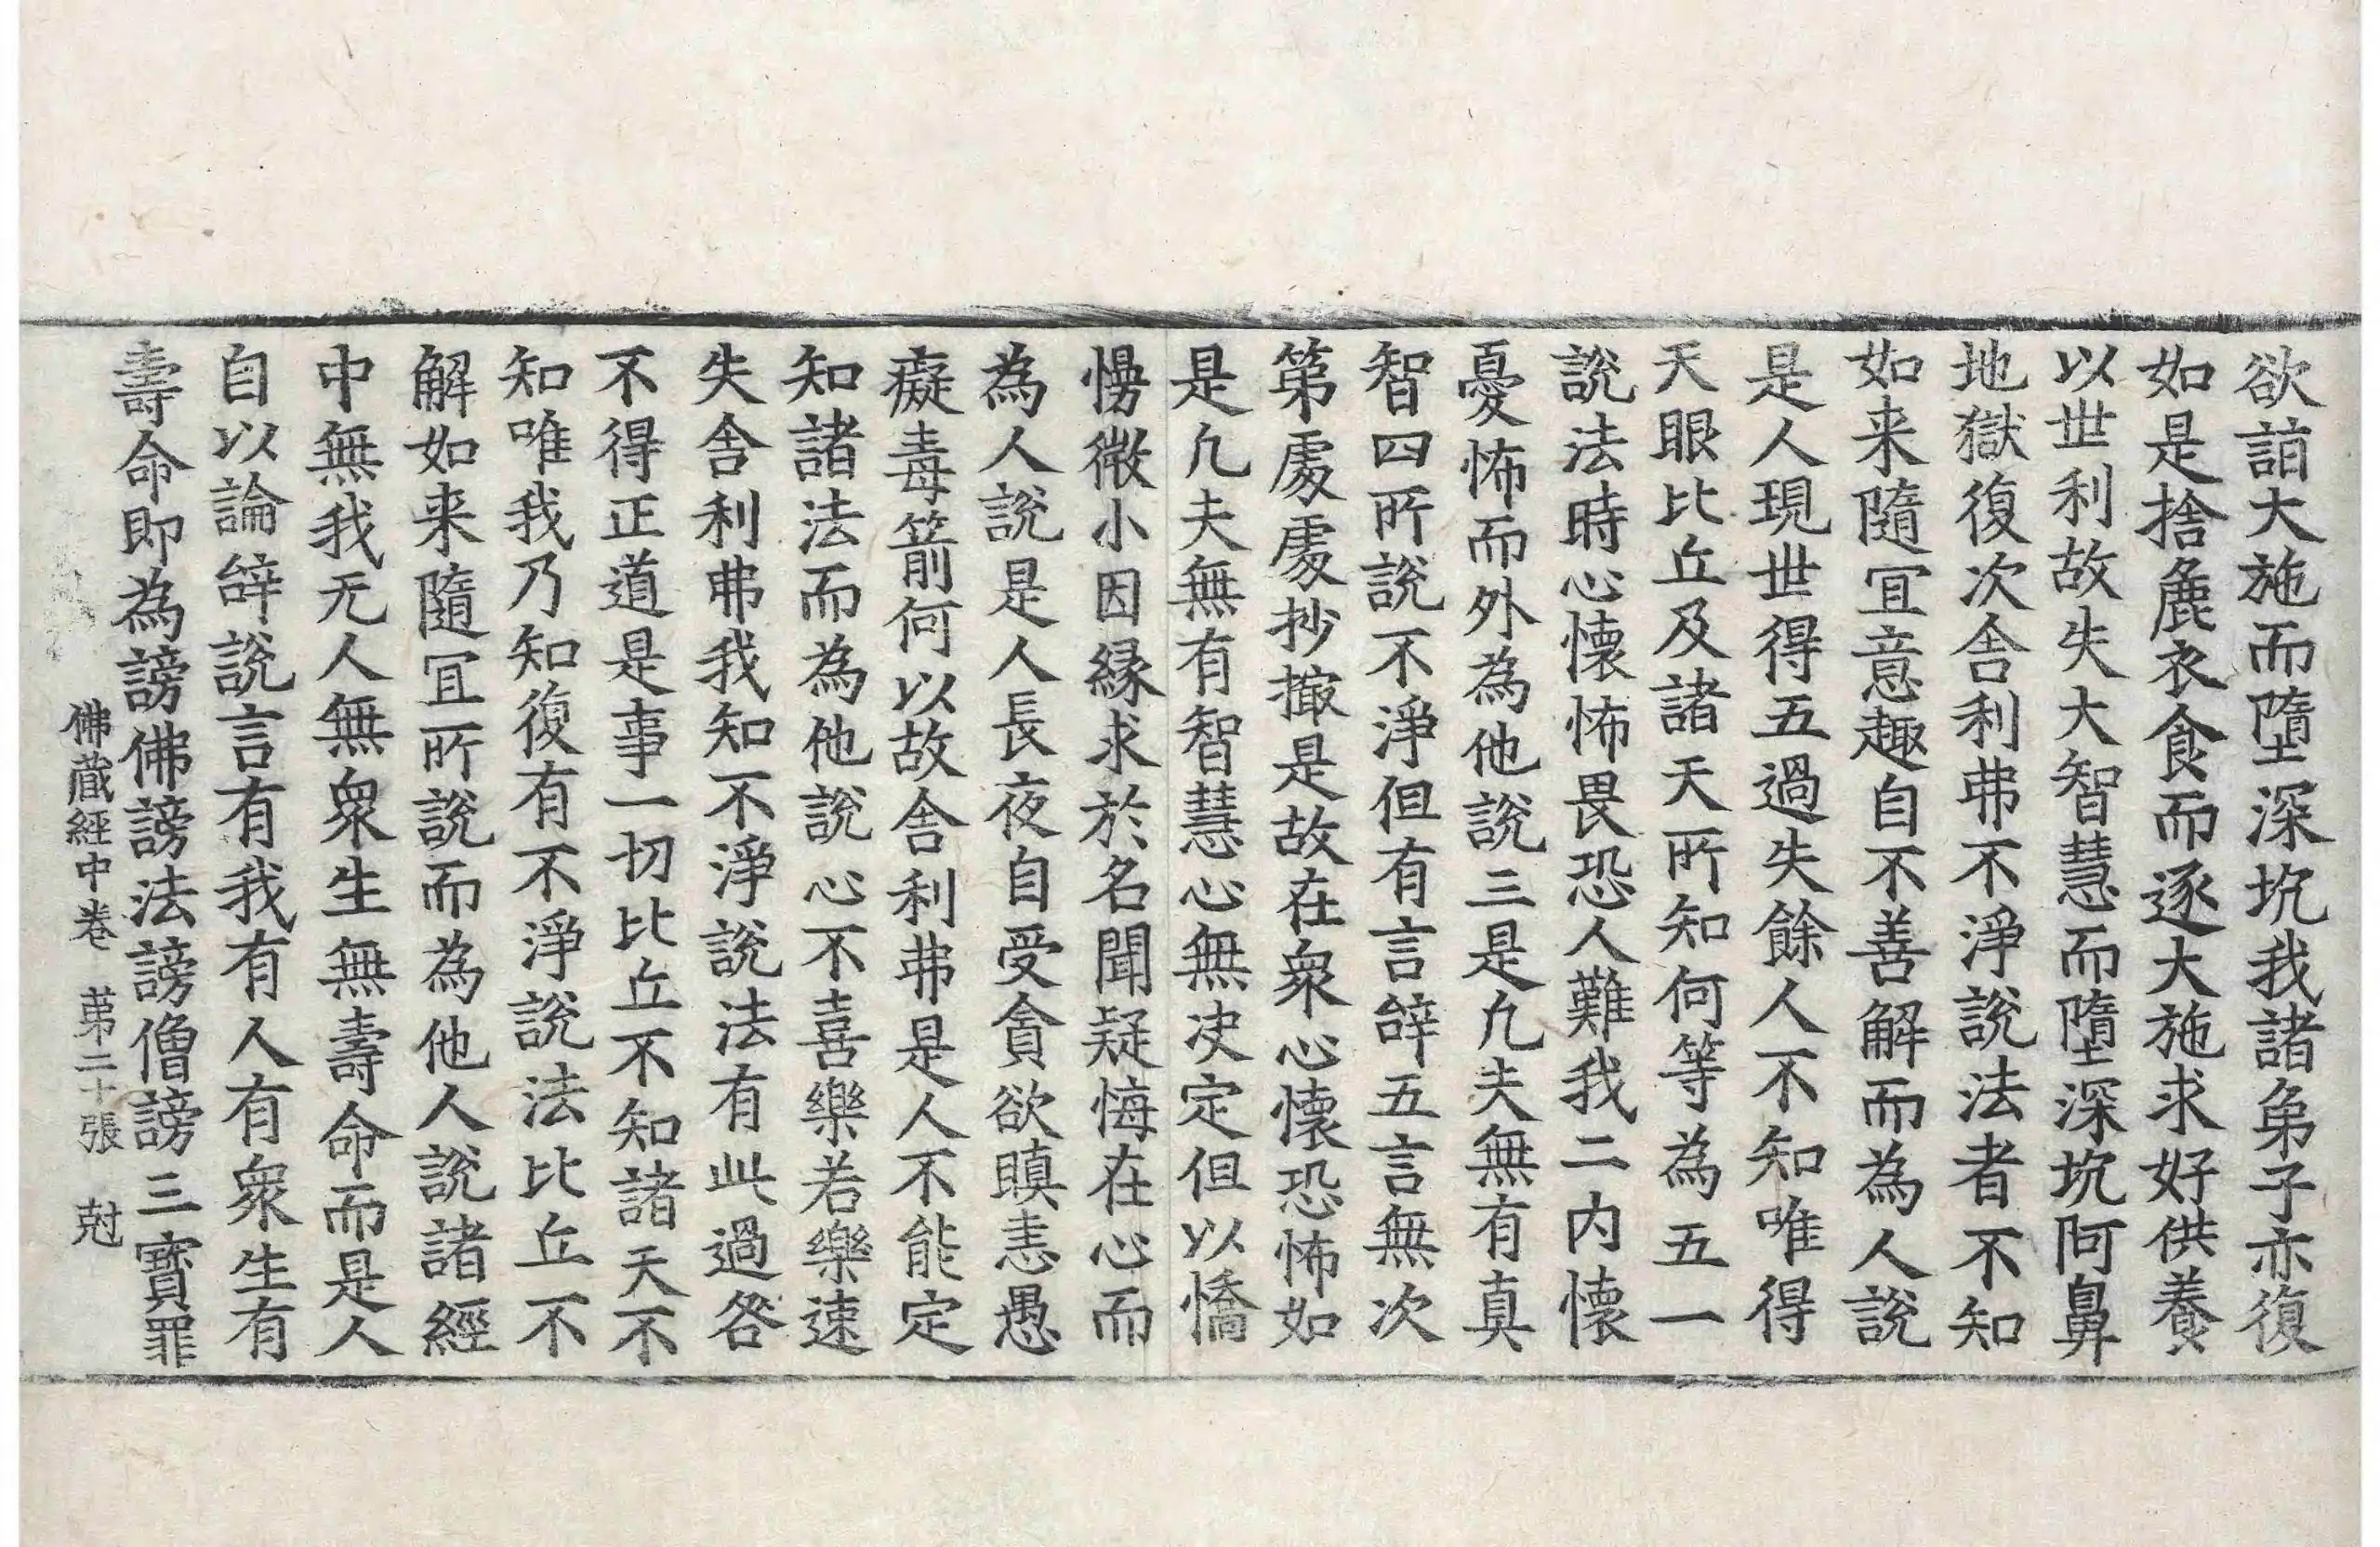 欲詣大施而墮深坑我諸弟子亦復
如是捨麁衣食而逐大施求好供養
以世利故失大智慧而墮深坑阿鼻
地獄復次舍利弗不淨說法者不知
如来隨冝意趣自不善解而為人說
是人現世得五過失餘人不知唯得
天眼比丘及諸天所知何等為五一
說法時心懷怖畏恐人難我二内懷
憂怖而外為他說三是凢夫無有真
智四所說不淨但有言辝五言無次
第處處抄撮是故在衆心懷恐怖如
是凢夫無有智慧心無决定但以憍
慢微小因縁求於名聞疑悔在心而
為人說是人長夜自受貪欲瞋恚愚
癡毒箭何以故舍利弗是人不能定
知諸法而為他說心不喜樂若樂速
失舍利弗我知不淨說法有此過咎
不得正道是事一切比丘不知諸天不
知唯我乃知復有不淨說法比丘不
解如来隨冝所說而為他人說諸經
中無我无人無衆生無壽命而是人
自以論辝說言有我有人有衆生有
壽命即為謗佛謗法謗僧謗三寶罪
佛蔵經中卷　苐二十張　尅